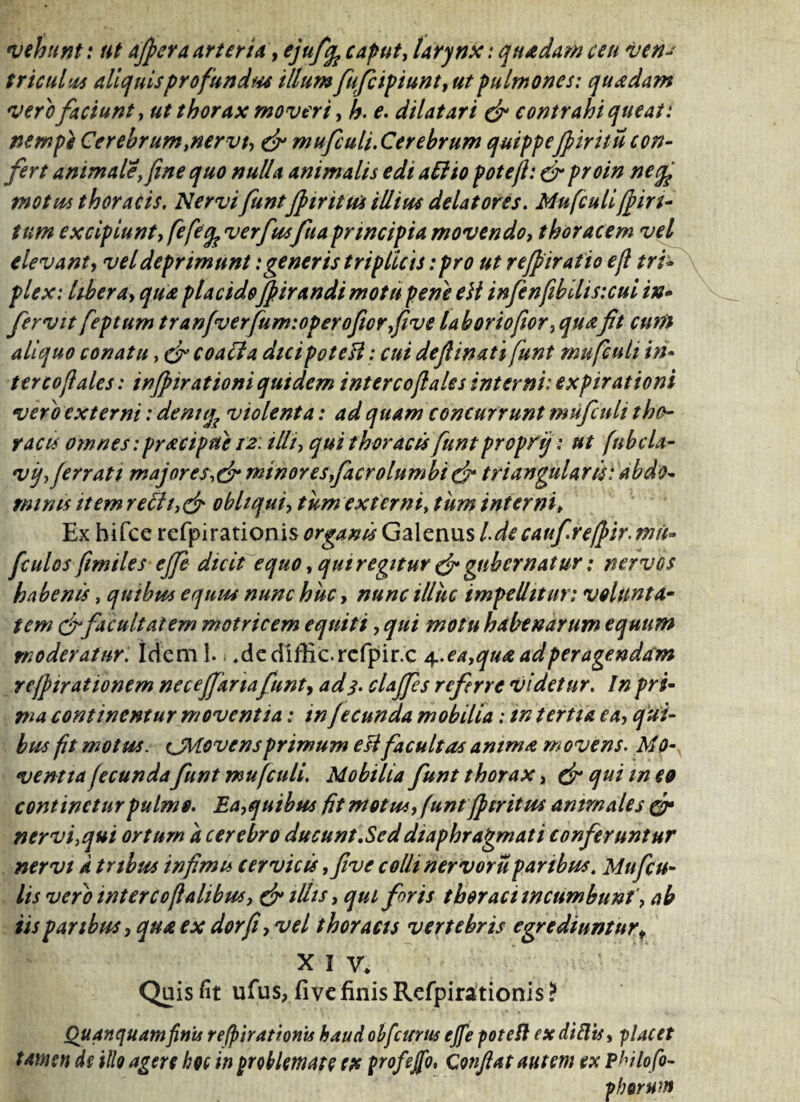 vehunt: ut aſpera arteria, ejuſq; caput, larynx: quædam ceu ven-
triculus aliquis profundus illum ſuſcipiunt, ut pulmones: quædam
vero faciunt, ut thorax moveri, h. e. dilatari & contrahi queat:
nempè Cerebrum, nervi, & muſculi. Cerebrum quippe ſpiritū con-
fert animalē, ſine quo nulla animalis edi actio poteſt: & proin neq;
motus thoracis. Nervi ſunt ſpiritus illius delatores. Muſculi ſpiri-
tum excipiunt, ſeſeq; verſus ſua principia movendo, thoracem vel
elevant, vel deprimunt: generis triplicis: pro ut reſpiratio eſt tri-
plex: libera, quæ placido ſpirandi motu pene eſt inſenſibilis: cui in-
ſervit ſeptum tranſverſum: operoſior, ſive laborioſior, quæ fit cum
aliquo conatu, & coacta dici poteſt: cui deſtinati ſunt muſculi in-
tercoſtales: inſpirationi quidem intercoſtales interni: expirationi
vero externi: deniq; violenta: ad quam concurrunt muſculi tho-
racis omnes: præcipue 12. illi, qui thoracis ſunt proprij: ut ſubcla-
vij, ſerrati majores, & minores, ſacrolumbi & triangularis: abdo-
minis item recti, & obliqui, tùm externi, tùm interni,
Ex hiſce reſpirationis organis Galenus l. de cauſ. reſpir. mu-
ſculos ſimiles eſſe dicit equo, qui regitur & gubernatur: nervos
habenis, quibus equus nunc hùc, nunc illùc impellitur: volunta-
tem & facultatem motricem equiti, qui motu habenarum equum
moderatur. Idem l. 1. de diffic. reſpir. c 4. ea, quæ ad peragendam
reſpirationem neceſſaria ſunt, ad 3. claſſes referre videtur. In pri-
ma continentur moventia: in ſecunda mobilia: in tertia ea, qui-
bus fit motus. Movens primum eſt facultas animæ movens. Mo-
ventia ſecunda ſunt muſculi. Mobilia ſunt thorax, & qui in eo
continetur pulmo. Ea, quibus fit motus, ſunt ſpiritus animales &
nervi, qui ortum à cerebro ducunt. Sed diaphragmati conferuntur
nervi à tribus infimis cervicis, ſive colli nervorū paribus. Muſcu-
lis vero intercoſtalibus, & illis, qui foris thoraci incumbunt, ab
iis paribus, quæ ex dorſi, vel thoracis vertebris egrediuntur,
XIV.
Quis ſit uſus, ſive finis Reſpirationis?
Quanquam finis reſpirationis haud obſcurus eſſe poteſt ex dictis, placet
tamen de illo agere hoc in problemate ex profeſſo. Conſtat autem ex Philoſo-
phorum